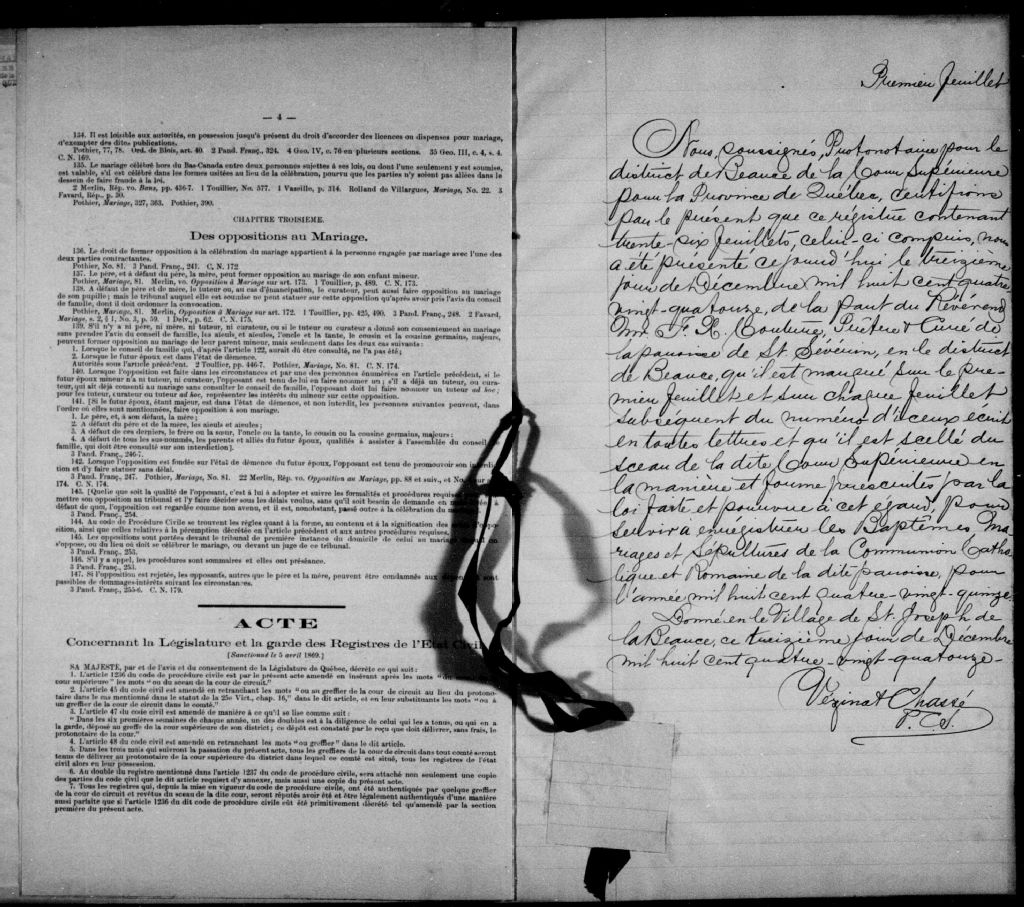 — 4 —
134. Il est loisible aux autorités, en possession jusqu'à présent du droit d'accorder des licences ou dispenses pour mariage,
d'exempter des dites publications.
Pothier, 77, 78. Ord. de Blois, art. 40. 2 Pand. Franç., 324. 4 Geo. IV, c. 76 en plusieurs sections. 35 Geo. III, c. 4, s. 4.
C. N. 169.
135. Le mariage célébré hors du Bas-Canada entre deux personnes sujettes à ses lois, ou dont l'une seulement y est soumise,
est valable, s'il est célébré dans les formes usitées au lieu de la célébration, pourvu que les parties n'y soient pas allées dans le
dessein de faire fraude à la loi.
2 Merlin, Rép. vo. Bans, pp. 436-7. 1 Touillier, No. 577. 1 Vazeille, p. 314. Rolland de Villargues, Mariage, No. 22. 3
Favard, Rép., p. 30.
Pothier, Mariage, 327, 363. Pothier, 390.
CHAPITRE TROISIÈME.
Des oppositions au Mariage.
136. Le droit de former opposition à la célébration du mariage appartient à la personne engagée par mariage avec l'une des
deux parties contractantes.
Pothier, No. 81. 3 Pand. Franç., 241. C. N. 172
137. Le père, et à défaut du père, la mère, peut former opposition au mariage de son enfant mineur.
Pothier, Mariage, 81. Merlin, vo. Opposition à Mariage sur art. 173. 1 Touillier, p. 489. C. N. 173.
138. A défaut de père et de mère, le tuteur ou, au cas d'émancipation, le curateur, peut aussi faire opposition au mariage
de son pupille; mais le tribunal auquel elle est soumise ne peut statuer sur cette opposition qu'après avoir pris l'avis du conseil
de famille, dont il doit ordonner la convocation.
Pothier, Mariage, 81. Merlin, Opposition à Mariage sur art. 172. 1 Touillier, pp. 425, 490. 3 Pand. Franç., 248. 2 Favard,
Mariage, s. 2, § 1, No. 3, p. 59. 1 Delv., p. 62. C. N. 175.
139. S'il n'y a ni père, ni mère, ni tuteur, ni curateur, ou si le tuteur ou curateur a donné son consentement au mariage
sans prendre l'avis du conseil de famille, les aïeuls et aïeules, l'oncle et la tante, le cousin et la cousine germains, majeurs,
peuvent former opposition au mariage de leur parent mineur, mais seulement dans les deux cas suivants:
1. Lorsque le conseil de famille qui, d'après l'article 122, aurait dû être consulté, ne l'a pas été;
2. Lorsque le futur époux est dans l'état de démence.
Autorités sous l'article précédent. 2 Toullier, pp. 446-7. Pothier, Mariage, No. 81. C. N. 174.
140. Lorsque l'opposition est faite dans les circonstances et par une des personnes énoncées en l'article précédent, si le
futur époux mineur n'a ni tuteur, ni curateur, l'opposant est tenu de lui en faire nommer un; s'il a déjà un tuteur, ou cura-
teur, qui ait déjà consenti au mariage sans consulter le conseil de famille, l'opposant doit lui faire nommer un tuteur ad hoc;
pour les tuteur, curateur ou tuteur ad hoc, représenter les intérêts du mineur sur cette opposition.
141. [Si le futur époux, étant majeur, est dans l'état de démence, et non interdit, les personnes suivantes peuvent, dans
l'ordre où elles sont mentionnées, faire opposition à son mariage.
1. Le père, et, à son défaut, la mère;
2. A défaut du père et de la mère, les aïeuls et aïeules;
3. A défaut de ces derniers, le frère ou la sœur, l'oncle ou la tante, le cousin ou la cousine germains, majeurs;
4. A défaut de tous les sus-nommés, les parents et alliés du futur époux, qualifiés à assister à l'assemblée du conseil
famille, qui doit être consulté sur son interdiction].
3 Pand. Franç., 246-7.
142. Lorsque l'opposition est fondée sur l'état de démence du futur époux, l'opposant est tenu de promouvoir son
tion et d'y faire statuer sans délai.
3 Pand. Franç., 247. Pothier, Mariage, No. 81. 22 Merlin, Rép. vo. Opposition au Mariage, pp. 88 et suiv., et No.
174. C. N. 174.
143. [Quelle que soit la qualité de l'opposant, c'est à lui à adopter et suivre les formalités et procédures
mettre son opposition au tribunal et l'y faire décider sous les délais voulus, sans qu'il soit besoin de demande en
défaut de quoi, l'opposition est regardée comme non avenu, et il est, nonobstant, passé outre à la célébration du
3 Pand. Franç., 254.
144. Au code de Procédure Civile se trouvent les règles quant à la forme, au contenu et à la signification des
sition, ainsi que celles relatives à la péremption décrétée en l'article précédent et aux autres procédures requises.
145. Les oppositions sont portées devant le tribunal de première instance du domicile de celui au mariage
s'oppose, ou du lieu où doit se célébrer le mariage, ou devant un juge de ce tribunal.
3 Pand. Franç., 253.
146. S'il y a appel, les procédures sont sommaires et elles ont préséance.
3 Pand. Franç., 253.
147. Si l'opposition est rejetée, les opposants, autres que le père et la mère, peuvent être condamnés aux sont
passibles de dommages-intérêts suivant les circonstances.
3 Pand. Franç., 255-6. C. N. 179.
ACTE
Concernant la Législature et la garde des Registres de l'Etat Civil
[Sanctionné le 5 avril 1869.]
SA MAJESTE, par et de l'avis et du consentement de la Législature de Québec, décrète ce qui suit:
1. L'article 1236 du code de procédure civile est par le présent acte amendé en insérant après les mots "
cour supérieure" les mots "ou du sceau de la cour de circuit."
2. L'article 45 du code civil est amendé en retranchant les mots "ou au greffier de la cour de circuit au lieu du protono-
taire dans le cas mentionné dans le statut de la 25e Vict., chap. 16," dans le dit article, et en leur substituants les mots "ou à
un greffier de la cour de circuit dans le comté."
3. L'article 47 du code civil est amendé de manière à ce qu'il se lise comme suit:
"Dans les six premières semaines de chaque année, un des doubles est à la diligence de celui qui les a tenus, ou qui en a
la garde, déposé au greffe de la cour supérieure de son district; ce dépôt est constaté par le reçu que doit délivrer, sans frais, le
protonotaire de la cour."
4. L'article 48 du code civil est amendé en retranchant les mots "ou greffier" dans le dit article.
5. Dans les trois mois qui suivront la passation du présent acte, tous les greffiers de la cour de circuit dans tout comté seront
tenus de délivrer au protonotaire de la cour supérieure du district dans lequel ce comté est situé, tous les registres de l'état
civil alors en leur possession.
6. Au double du registre mentionné dans l'article 1237 du code de procédure civile, sera attaché non seulement une copie
des parties du code civil que le dit article requiert d'y annexer, mais aussi une copie du présent acte.
7. Tous les registres qui, depuis la mise en vigueur du code de procédure civile, ont été authentiqués par quelque greffier
de la cour de circuit et revêtus du sceau de la dite cour, seront réputés avoir été et être légalement authentiqués d'une manière
aussi parfaite que si l'article 1236 du dit code de procédure civile eût été primitivement décrété tel qu'amendé par la section
première du présent acte.
Premier feuillet
Nous, soussignés, Protonotaire pour le
district de Beauce de la Cour Supérieure
pour la Province de Québec, certifions
par le présent que ce registre contenant
trente-six feuillets, celui-ci compris, nous
a été présenté ce jourd'hui le treizième
jour de Décembre mil huit cent quatre
vingt-quatorze, de la part du Révérend
Couture, Prêtre & Curé de
la paroisse de St. Séverin, en le district
de Beauce, qu'il est marqué sur le pre-
mier feuillet et sur chaque feuillet
subséquent du numéro d'iceux écrit
en toutes lettres et qu'il est scellé du
sceau de la dite Cour Supérieure en
la manière et forme prescrites par la
loi faite et pourvue à cet égard, pour
servir à enrégistrer les Baptêmes Ma-
riages et Sépultures de la Communion Catho
lique et Romaine de la dite paroisse, pour
l'année mil huit cent quatre-vingt-quinze.
Donné en le Village de St. Joseph de
la Beauce, ce treizième jour de Décembre
mil huit cent quatre-vingt-quatorze-
Vézina & Chassé
P. C. S.